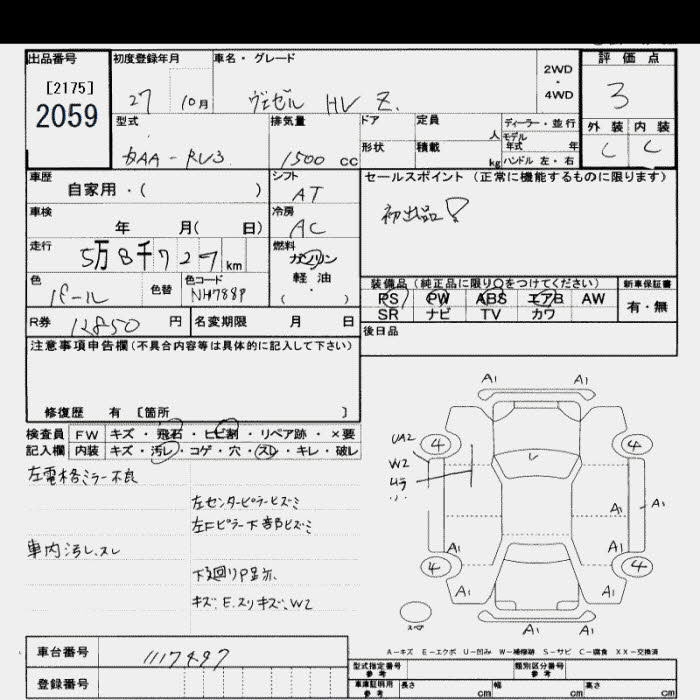 出品番号
[2175]
2059
初度登録年月
27 10月
車名・グレード
ヴェゼル HV Z.
2WD
・
4WD
評価点
3
外装 内装
C C
型式
DAA-RU3
排気量
1500 cc
ドア
形状
定員
人
積載
kg
ディーラー・並行
モデル年式 年
ハンドル 左・右
車歴
自家用・( )
シフト
AT
セールスポイント (正常に機能するものに限ります)
初出品!
車検
年 月( 日)
冷房
AC
走行
5万8千727km
燃料
ガソリン
軽・油
( ・ )
色
パール
色替
色コード
NH788P
装備品 (純正品に限り○をつけてください)
PS PW ABS エアB AW
SR ナビ TV カワ
新車保証書
有・無
R券 12850 円
名変期限 月 日
後日品
注意事項申告欄 (不具合内容等は具体的に記入して下さい)
修復歴 有 [箇所 ]
検査員記入欄
FW キズ・飛石・ヒビ割・リペア跡・×要
内装 キズ・汚レ・コゲ・穴・スレ・キレ・破レ
左電格ミラー不良
左センターピラーヒズミ
左Fピラー下部ヒズミ
車内汚レ.スレ
下廻りP显示.
キズ.E.スリキズ.W2
A1 A1
A1 A1
UA2
W2
ムラ
4 4
レ
A1
A1
A1 A1
4 4
A1 A1
A1 A1
スペア
A-キズ E-エクボ U-凹み W-補修跡 S-サビ C-腐食 XX-交換済
車台番号 1117497
登録番号
型式指定番号 参考
類別区分番号 参考
車庫証明用 参考
長さ cm 幅 cm 高さ cm